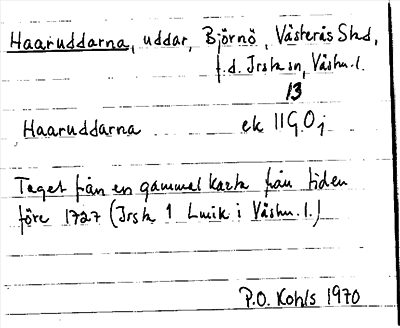 Haaruddarna, uddar, Björnö, Västerås Stad,
f.d. Irsta sn, Västm.l.
13
Haaruddarna ek 11G0j
Taget från en gammal karta från tiden
före 1727 (Irsta 1 Lmik i Västm.l.)
P.O. Kohls 1970